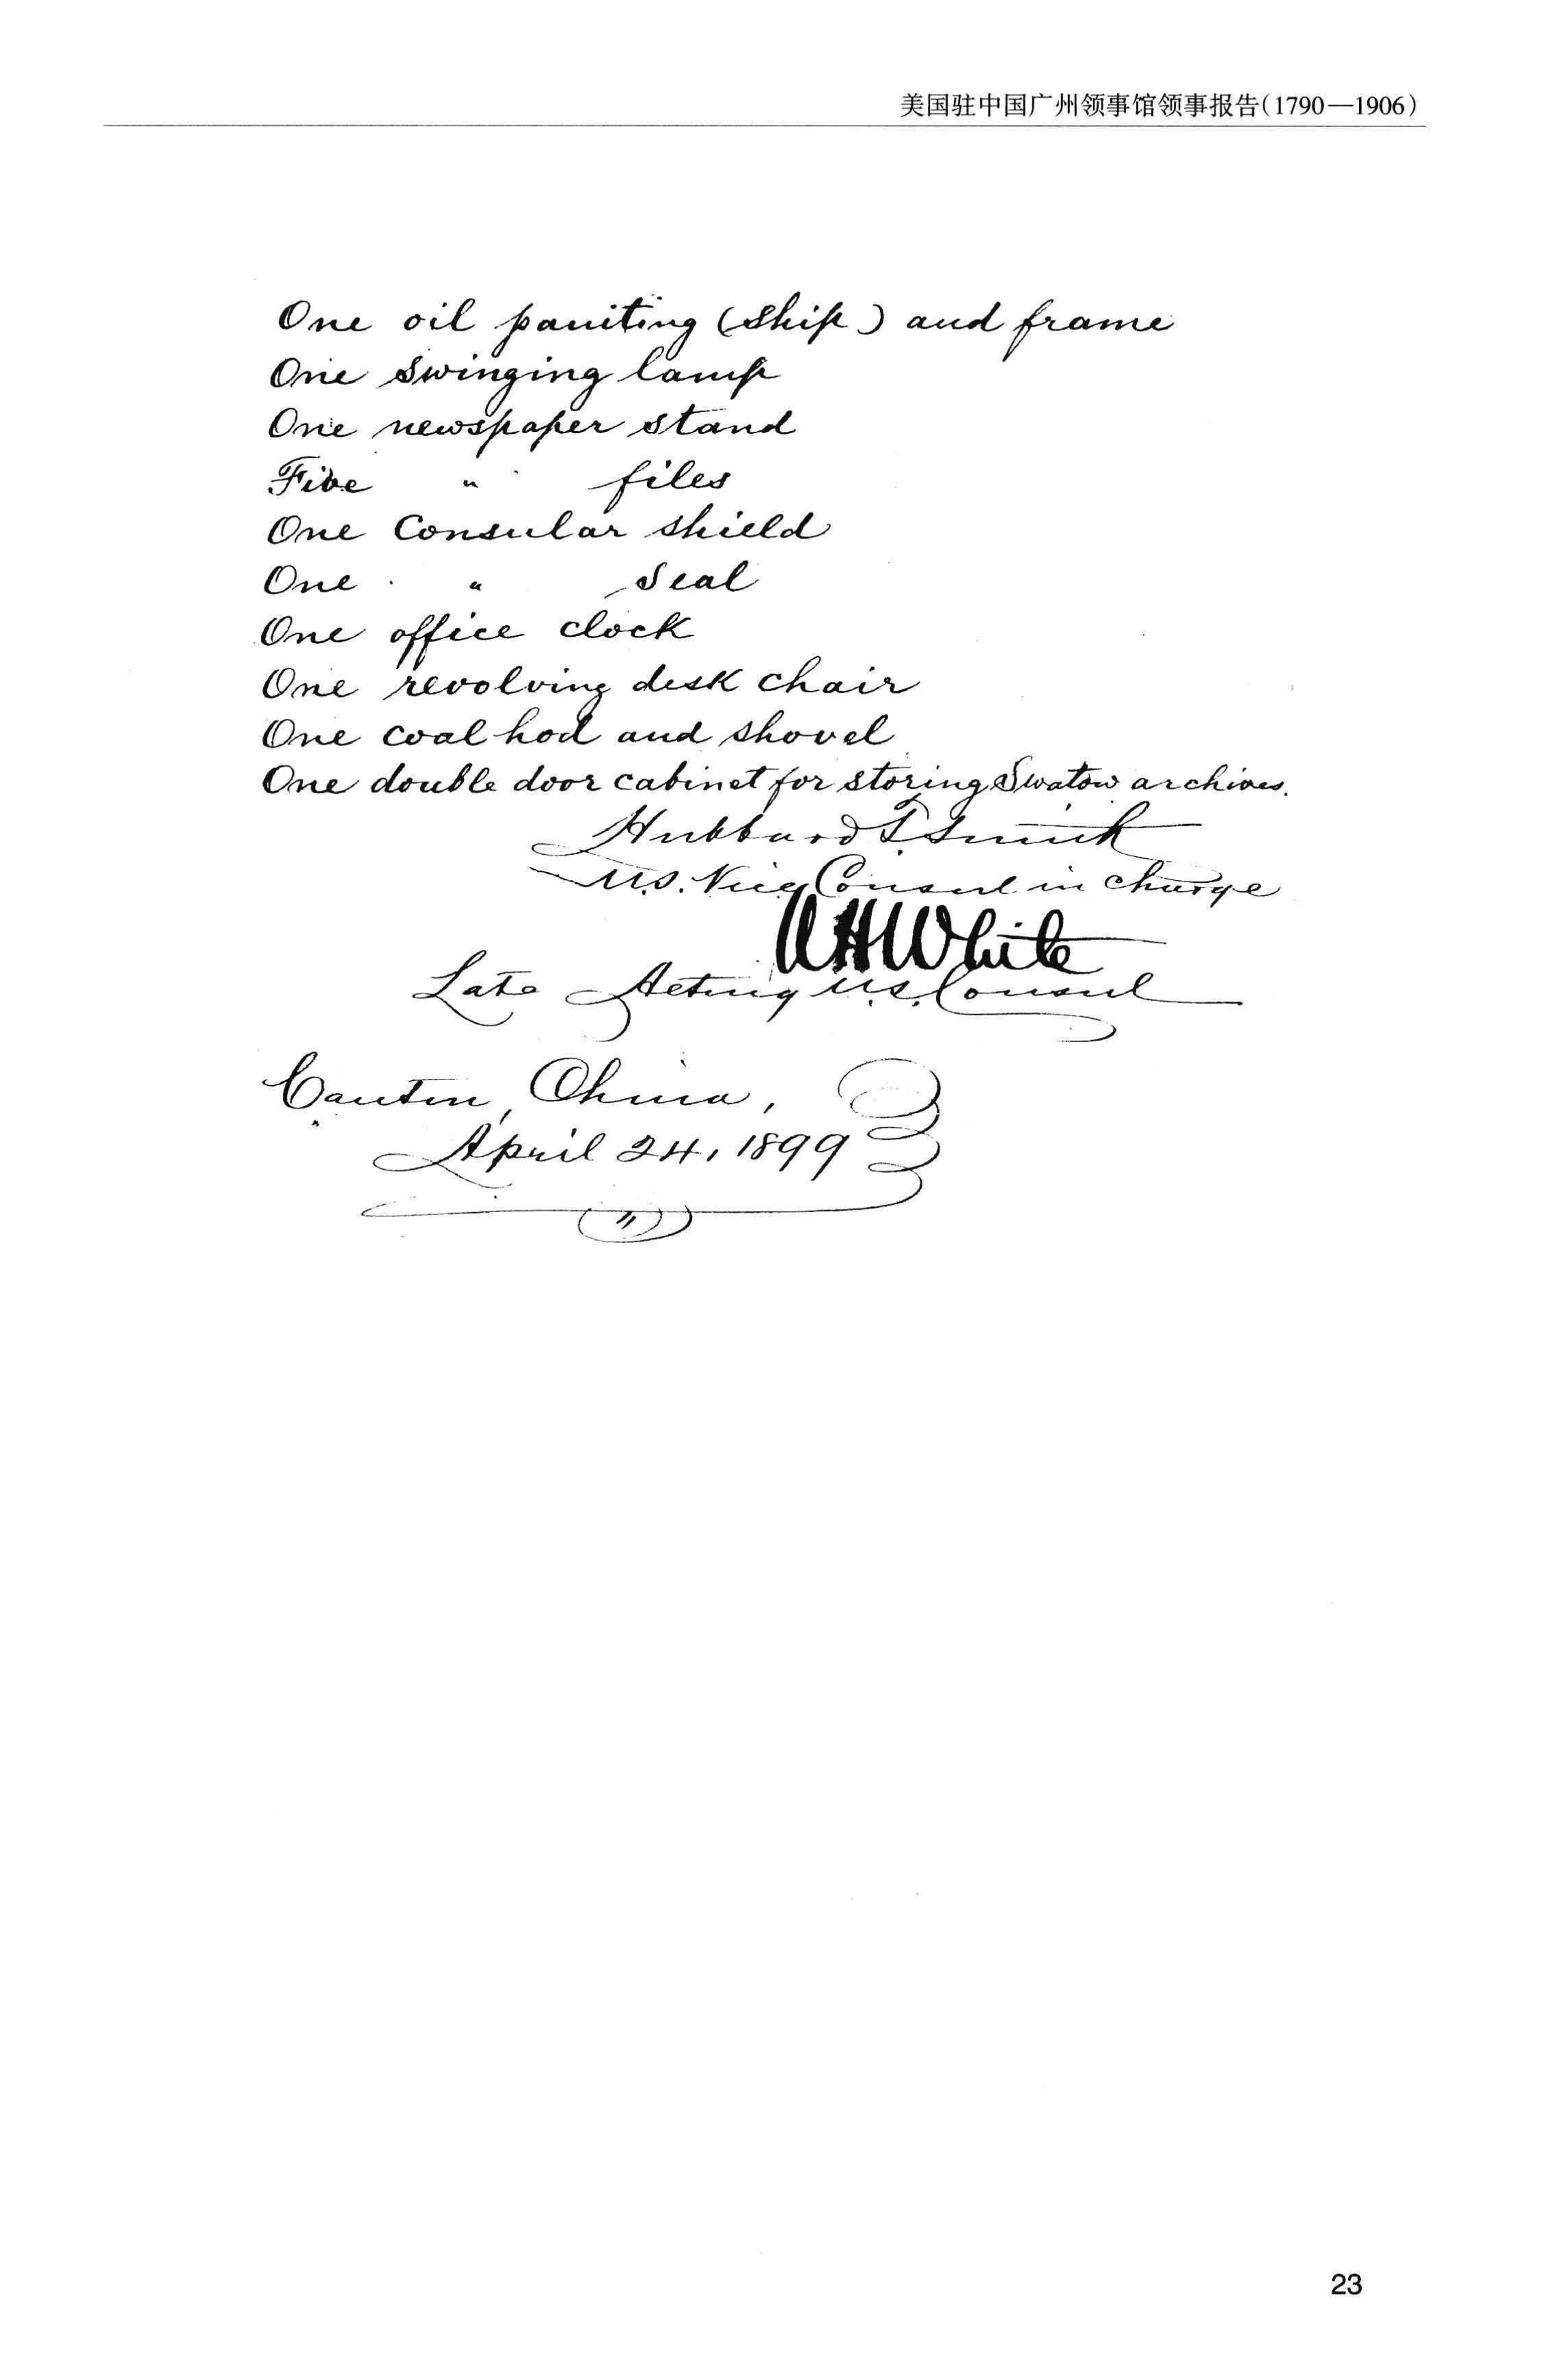 美国驻中国广州领事馆领事报告(1790—1906)
One oil painting (Ship) and frame
One Swinging lamp
One newspaper stand
Five " files
One Consular shield
One " Seal
One office clock
One revolving desk chair
One coal hod and shovel
One double door cabinet for storing Swatow archives.
Hubbard T. Smith
U.S. Vice Consul in charge
White
Late Acting U.S. Consul
Canton, China,
April 24, 1899
23